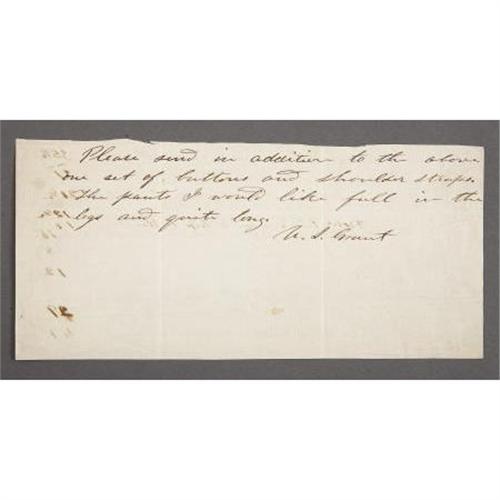 Please send in addition to the above
one set of buttons and shoulder straps.
The pants I would like full in the
legs and quite long.
U. S. Grant